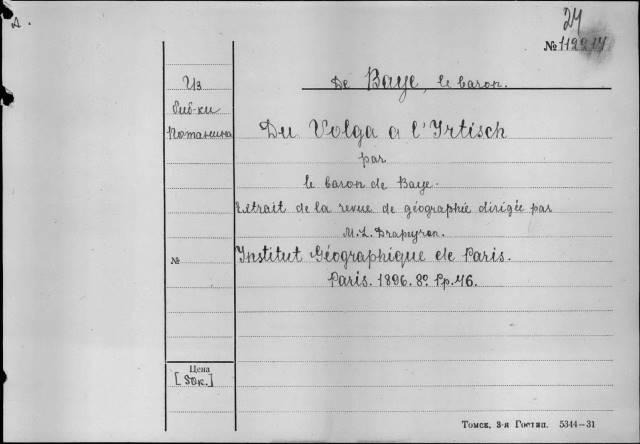 А.
24
№ 112217
Из
биб-ки
Потанина
De Baye, le baron.
Du Volga a l'Irtisch
par
le baron de Baye.
Extrait de la revue de géographie dirigée par
M. L. Drapeyron.
№
Institut Géographique de Paris.
Paris. 1896. 8º. Pp. 46.
Цена
[50к.]
Томск, 3-я Гостип. 5344—31